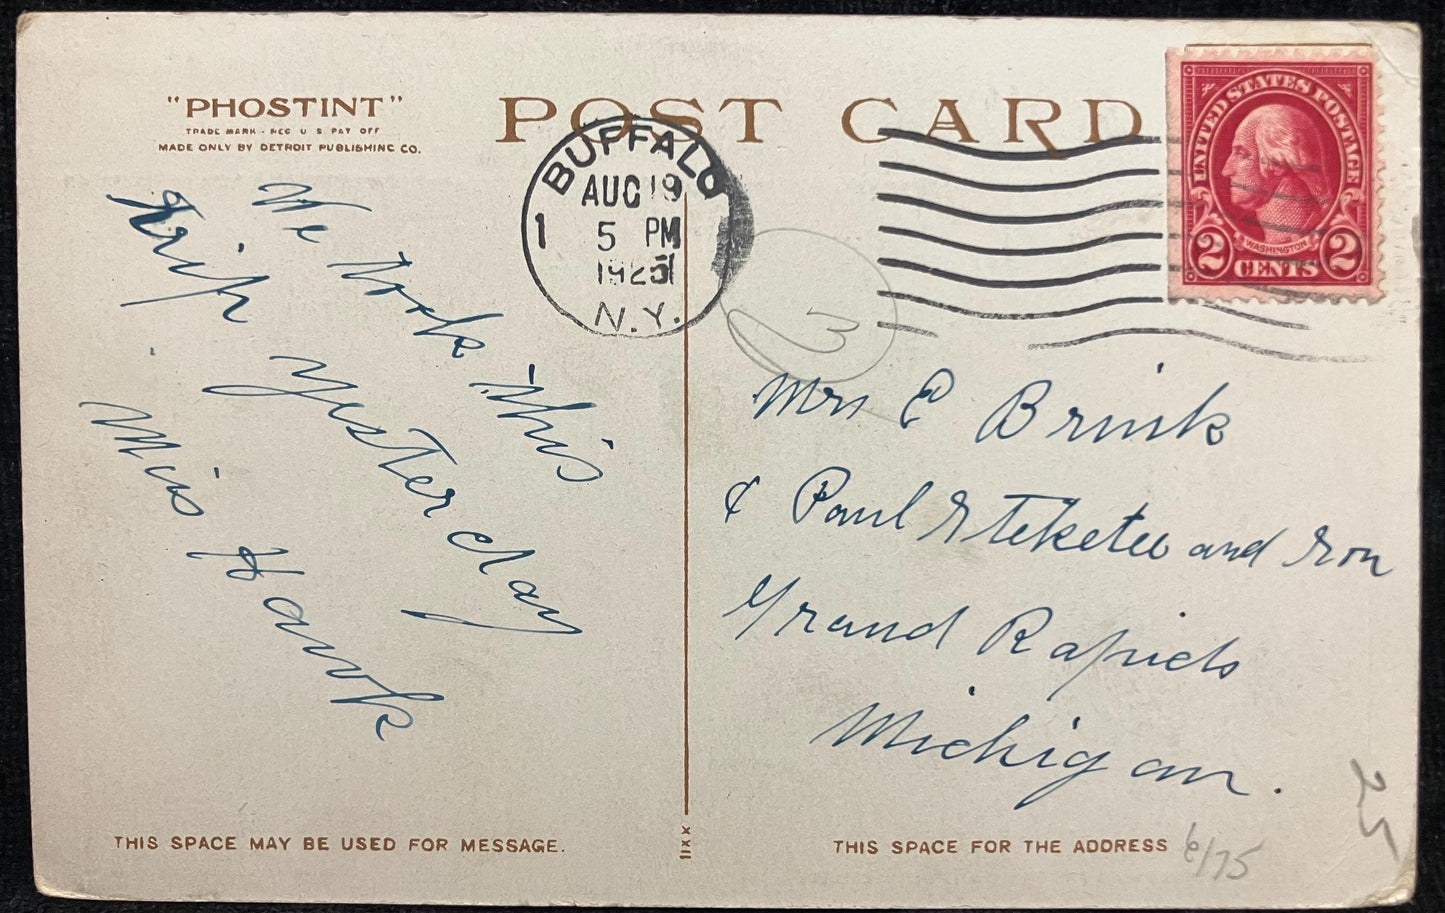 "PHOSTINT"
TRADE MARK · REG U S PAT OFF
MADE ONLY BY DETROIT PUBLISHING CO.
POST CARD
BUFFALO
AUG 19
1 5 PM
1925
N.Y.
UNITED STATES POSTAGE
WASHINGTON
2 CENTS 2
We took this
trip yesterday
Miss Hawk
Mrs E Brink
& Paul Steketee and Son
Grand Rapids
Michigan.
THIS SPACE MAY BE USED FOR MESSAGE.
THIS SPACE FOR THE ADDRESS
6/75
25